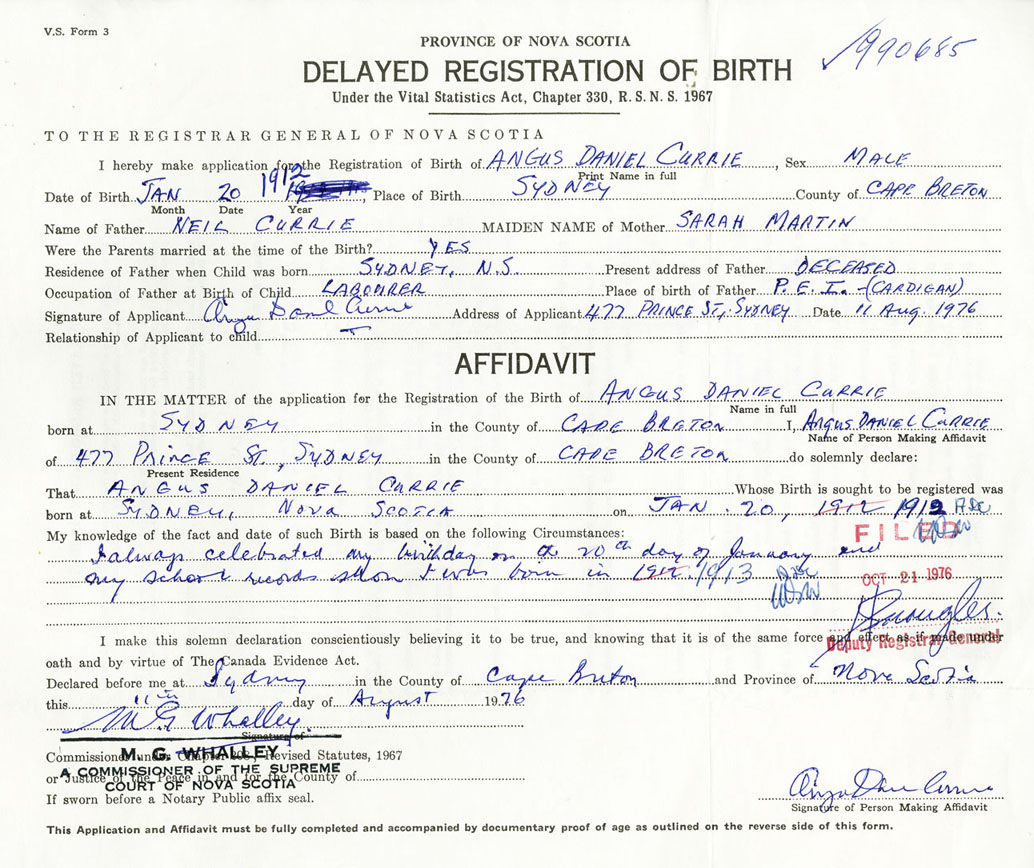 V.S. Form 3
990685
PROVINCE OF NOVA SCOTIA
DELAYED REGISTRATION OF BIRTH
Under the Vital Statistics Act, Chapter 330, R. S. N. S. 1967
TO THE REGISTRAR GENERAL OF NOVA SCOTIA
I hereby make application for the Registration of Birth of ANGUS DANIEL CURRIE, Sex MALE
Print Name in full
Date of Birth JAN 20 1912, Place of Birth SYDNEY County of CAPE BRETON
Month Date Year
Name of Father NEIL CURRIE MAIDEN NAME of Mother SARAH MARTIN
Were the Parents married at the time of the Birth? YES
Residence of Father when Child was born SYDNEY, N.S. Present address of Father DECEASED
Occupation of Father at Birth of Child LABOURER Place of birth of Father P.E.I. -(CARDIGAN)
Signature of Applicant Angus Daniel Currie Address of Applicant 477 PRINCE ST., SYDNEY Date 11 Aug. 1976
Relationship of Applicant to child
AFFIDAVIT
IN THE MATTER of the application for the Registration of the Birth of ANGUS DANIEL CURRIE
Name in full
born at SYDNEY in the County of CAPE BRETON I, ANGUS DANIEL CURRIE
Name of Person Making Affidavit
of 477 PRINCE ST., SYDNEY in the County of CAPE BRETON do solemnly declare:
Present Residence
That ANGUS DANIEL CURRIE Whose Birth is sought to be registered was
born at SYDNEY, NOVA SCOTIA on JAN. 20, 1912 1912
My knowledge of the fact and date of such Birth is based on the following Circumstances:
FILED
I always celebrated my birthday on the 20th day of January and
my school records show I was born in 1912. 1913
OCT 21 1976
I make this solemn declaration conscientiously believing it to be true, and knowing that it is of the same force and effect as if made under
Deputy Registrar General
oath and by virtue of The Canada Evidence Act.
Declared before me at Sydney in the County of Cape Breton and Province of Nova Scotia
this 11th day of August 1976
M G Whalley
Signature of
Commissioner under Chapter 208, Revised Statutes, 1967
M. G. WHALLEY
or Justice of the Peace in and for the County of
A COMMISSIONER OF THE SUPREME
COURT OF NOVA SCOTIA
If sworn before a Notary Public affix seal.
Angus Dan Currie
Signature of Person Making Affidavit
This Application and Affidavit must be fully completed and accompanied by documentary proof of age as outlined on the reverse side of this form.